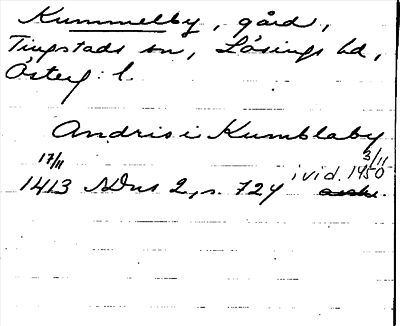 Kummelby, gård,
Tingstads sn, Lösings hd,
Österg. l.
Andris i Kumblaby
17/11 3/11
1413 NDns 2, s. 724 i vid. 1450